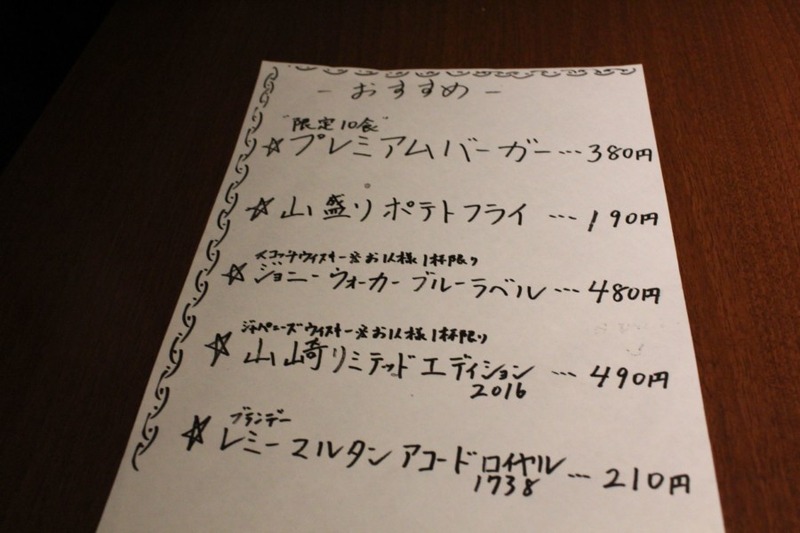 -おすすめ-
"限定10食"
☆プレミアムバーガー…380円
☆山盛りポテトフライ…190円
スコッチウィスキー※お1人様1杯限り
☆ジョニーウォーカーブルーラベル…480円
ジャパニーズウィスキー※お1人様1杯限り
☆山崎リミテッドエディション…490円
2016
ブランデー
☆レミーマルタンアコードロイヤル…210円
1738